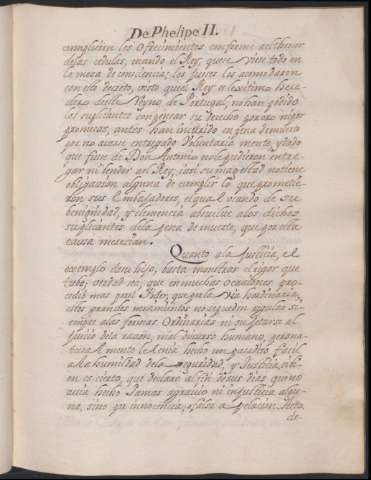 De Phelipe II.
cumpliesen los ofrecimientos conforme al thenor
de sus cedulas, quando el Rey, que se viese todo en
la mesa de consciencia; los Jueces los acomodaron
con este decreto, visto que el Rey es legitimo here
dero deste Reyno de Portugal, no han podido
los suplicantes compensar su derecho por oro ni por
promesas, antes han incurrido en pena de muerte
por no averse entregado voluntaria mente, y dado
que fuese de Don Antonio no le pudieron entre
gar ni vender al Rey, i asi su magestad no tiene
obligacion alguna de cumplir lo que prometie
ron sus Embajadores, el qual usando de su
benignidad, y clemencia absuelve a los dichos
suplicantes de la pena de muerte, que por esta
causa merecian.
Quanto a la Justicia, el
exemplo de su hijo, basta mostrar el rigor que
tubo, verdad es, que en muchas ocasiones pro
cedio mas por el Poder, que por la via hordinaria,
estos grandes movimientos no se pueden
siempre a las formas ordinarias ni sugetarse al
juicio de la razon, ni al discurso humano,
mente le tenia hecho un
a la humildad de la seguridad, y Justicia,
en es cierto, que declaro al fin de sus dias que no
avia hecho Jamas agravio ni injusticia algu
na, sino por innocencia, o falsa relacion
de